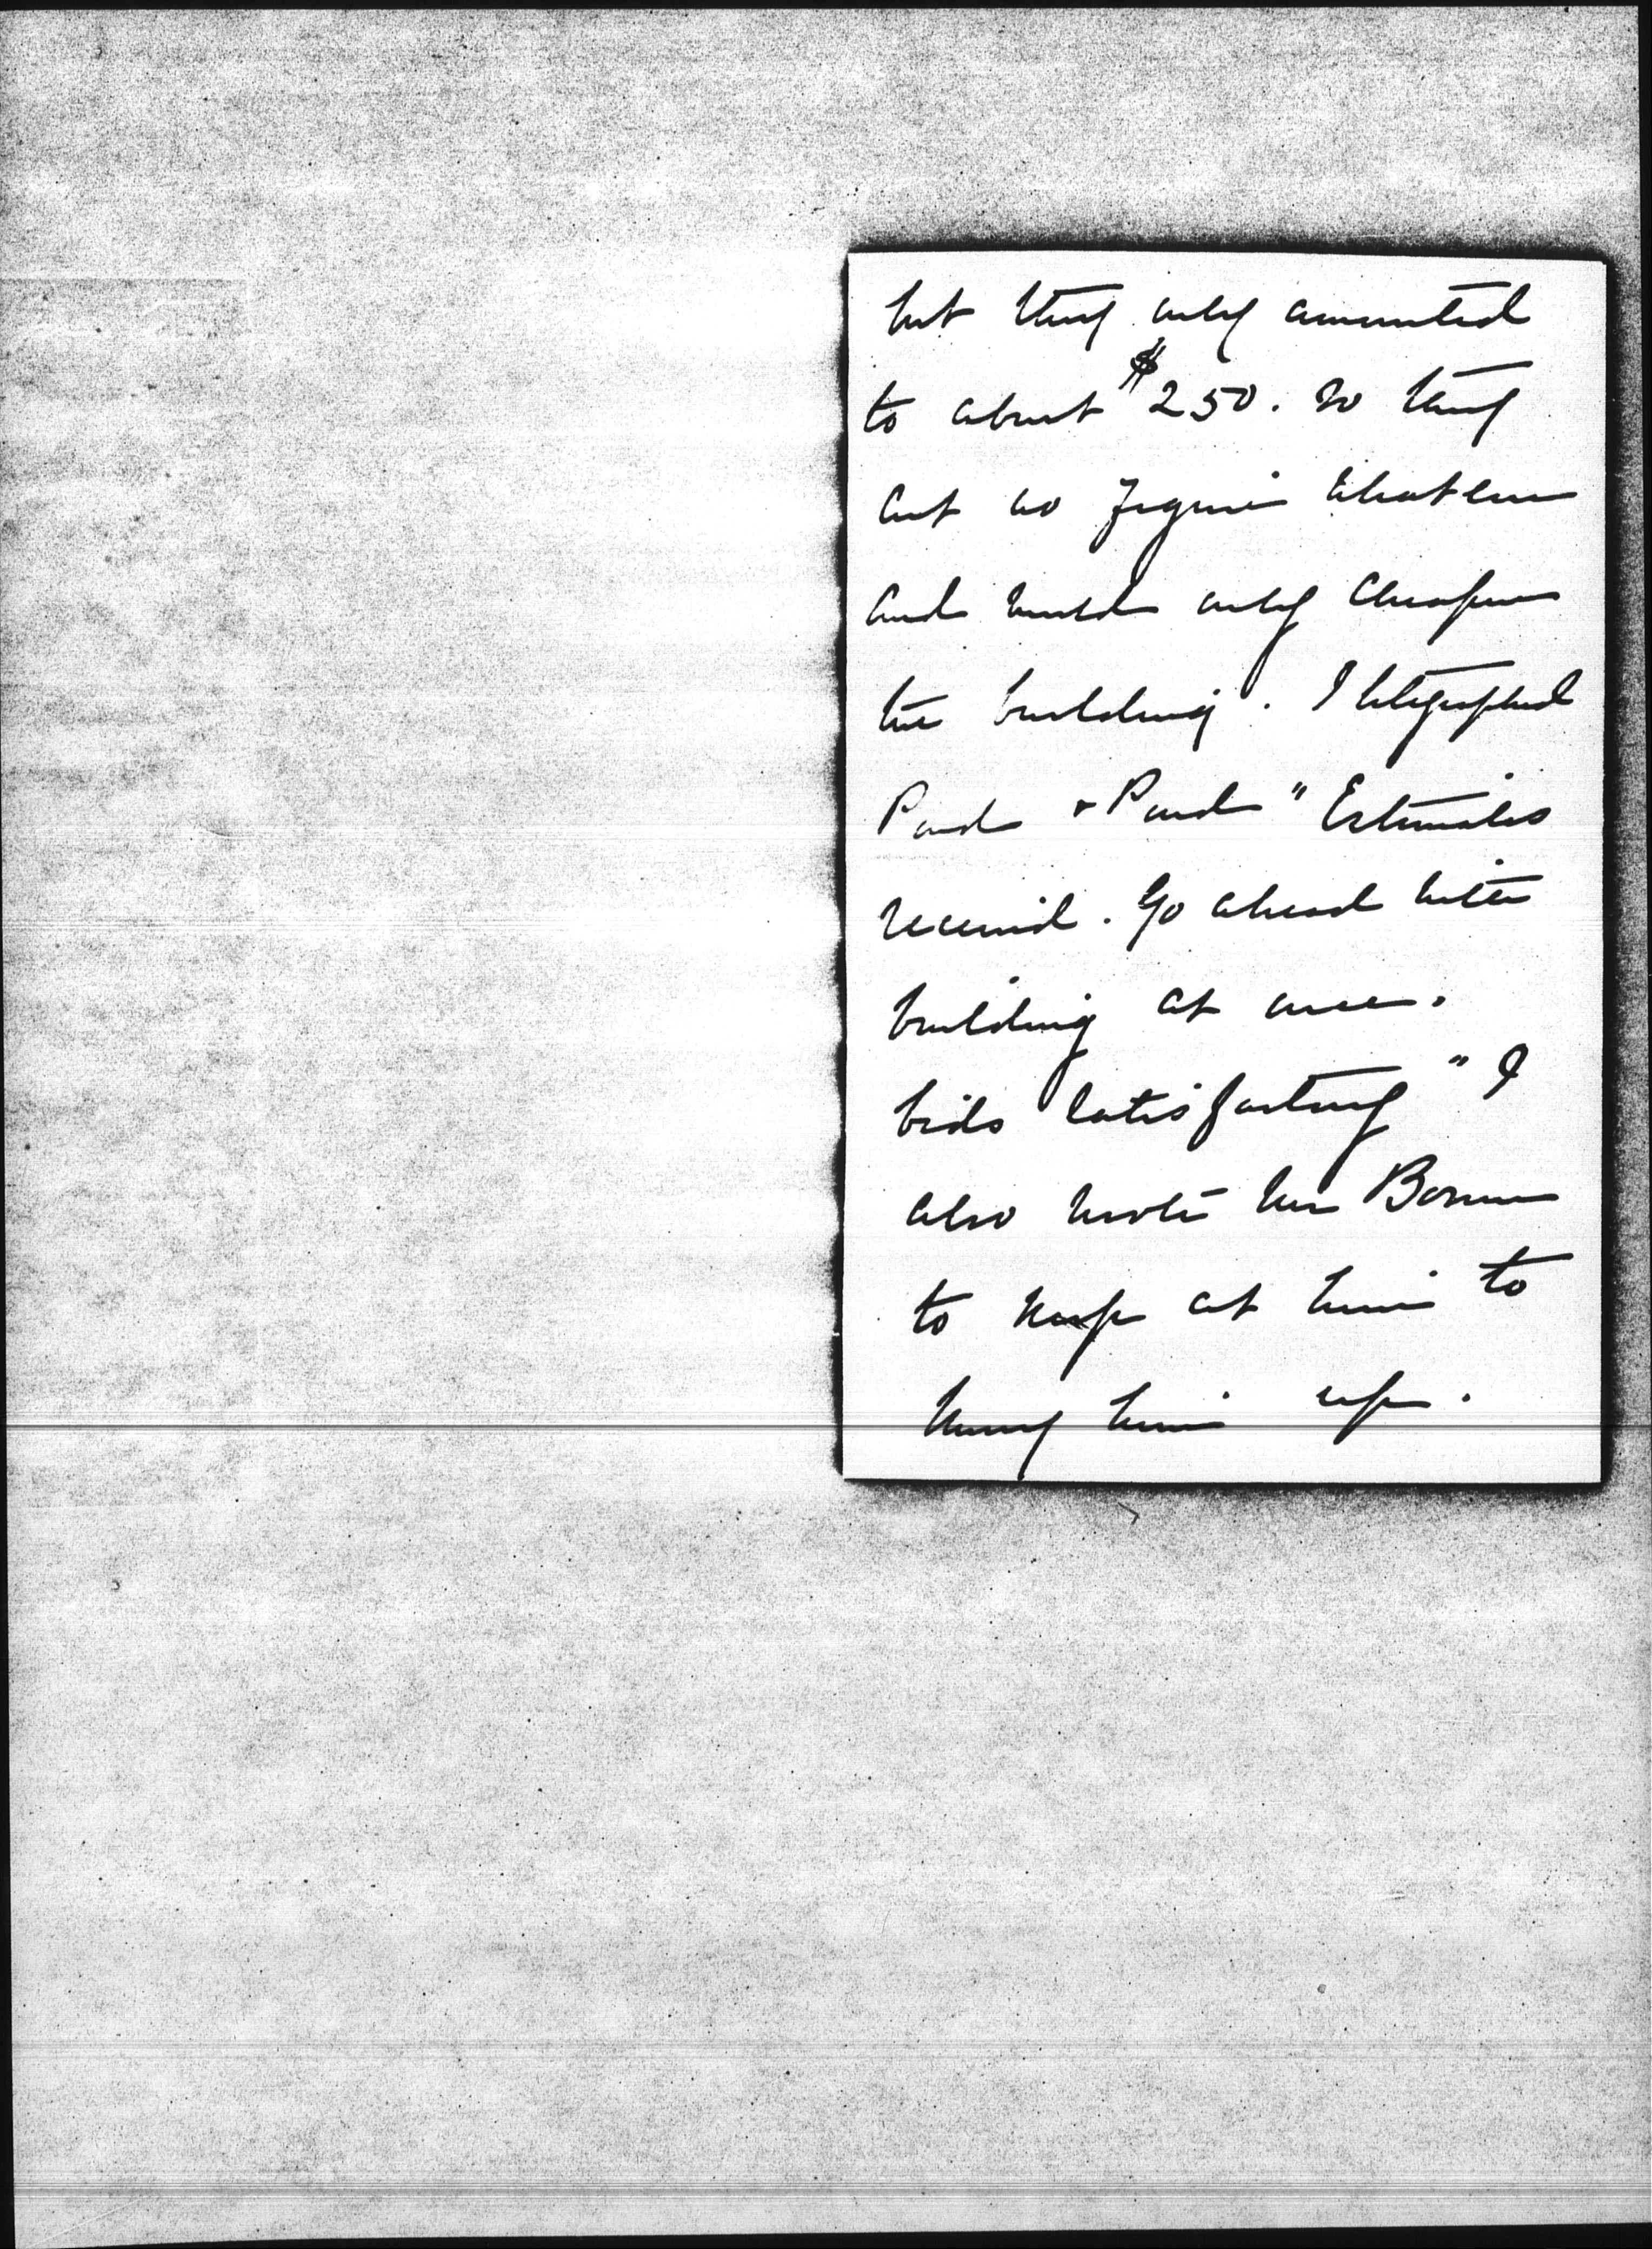 but they only amounted
to about $250. so they
cut no figure whatever
and would only cheapen
the building. I telegraphed
Pond & Pond "Estimates
received. Go ahead with
building at once.
bids satisfactory" I
also wrote him
to keep at him to
hurry him up.